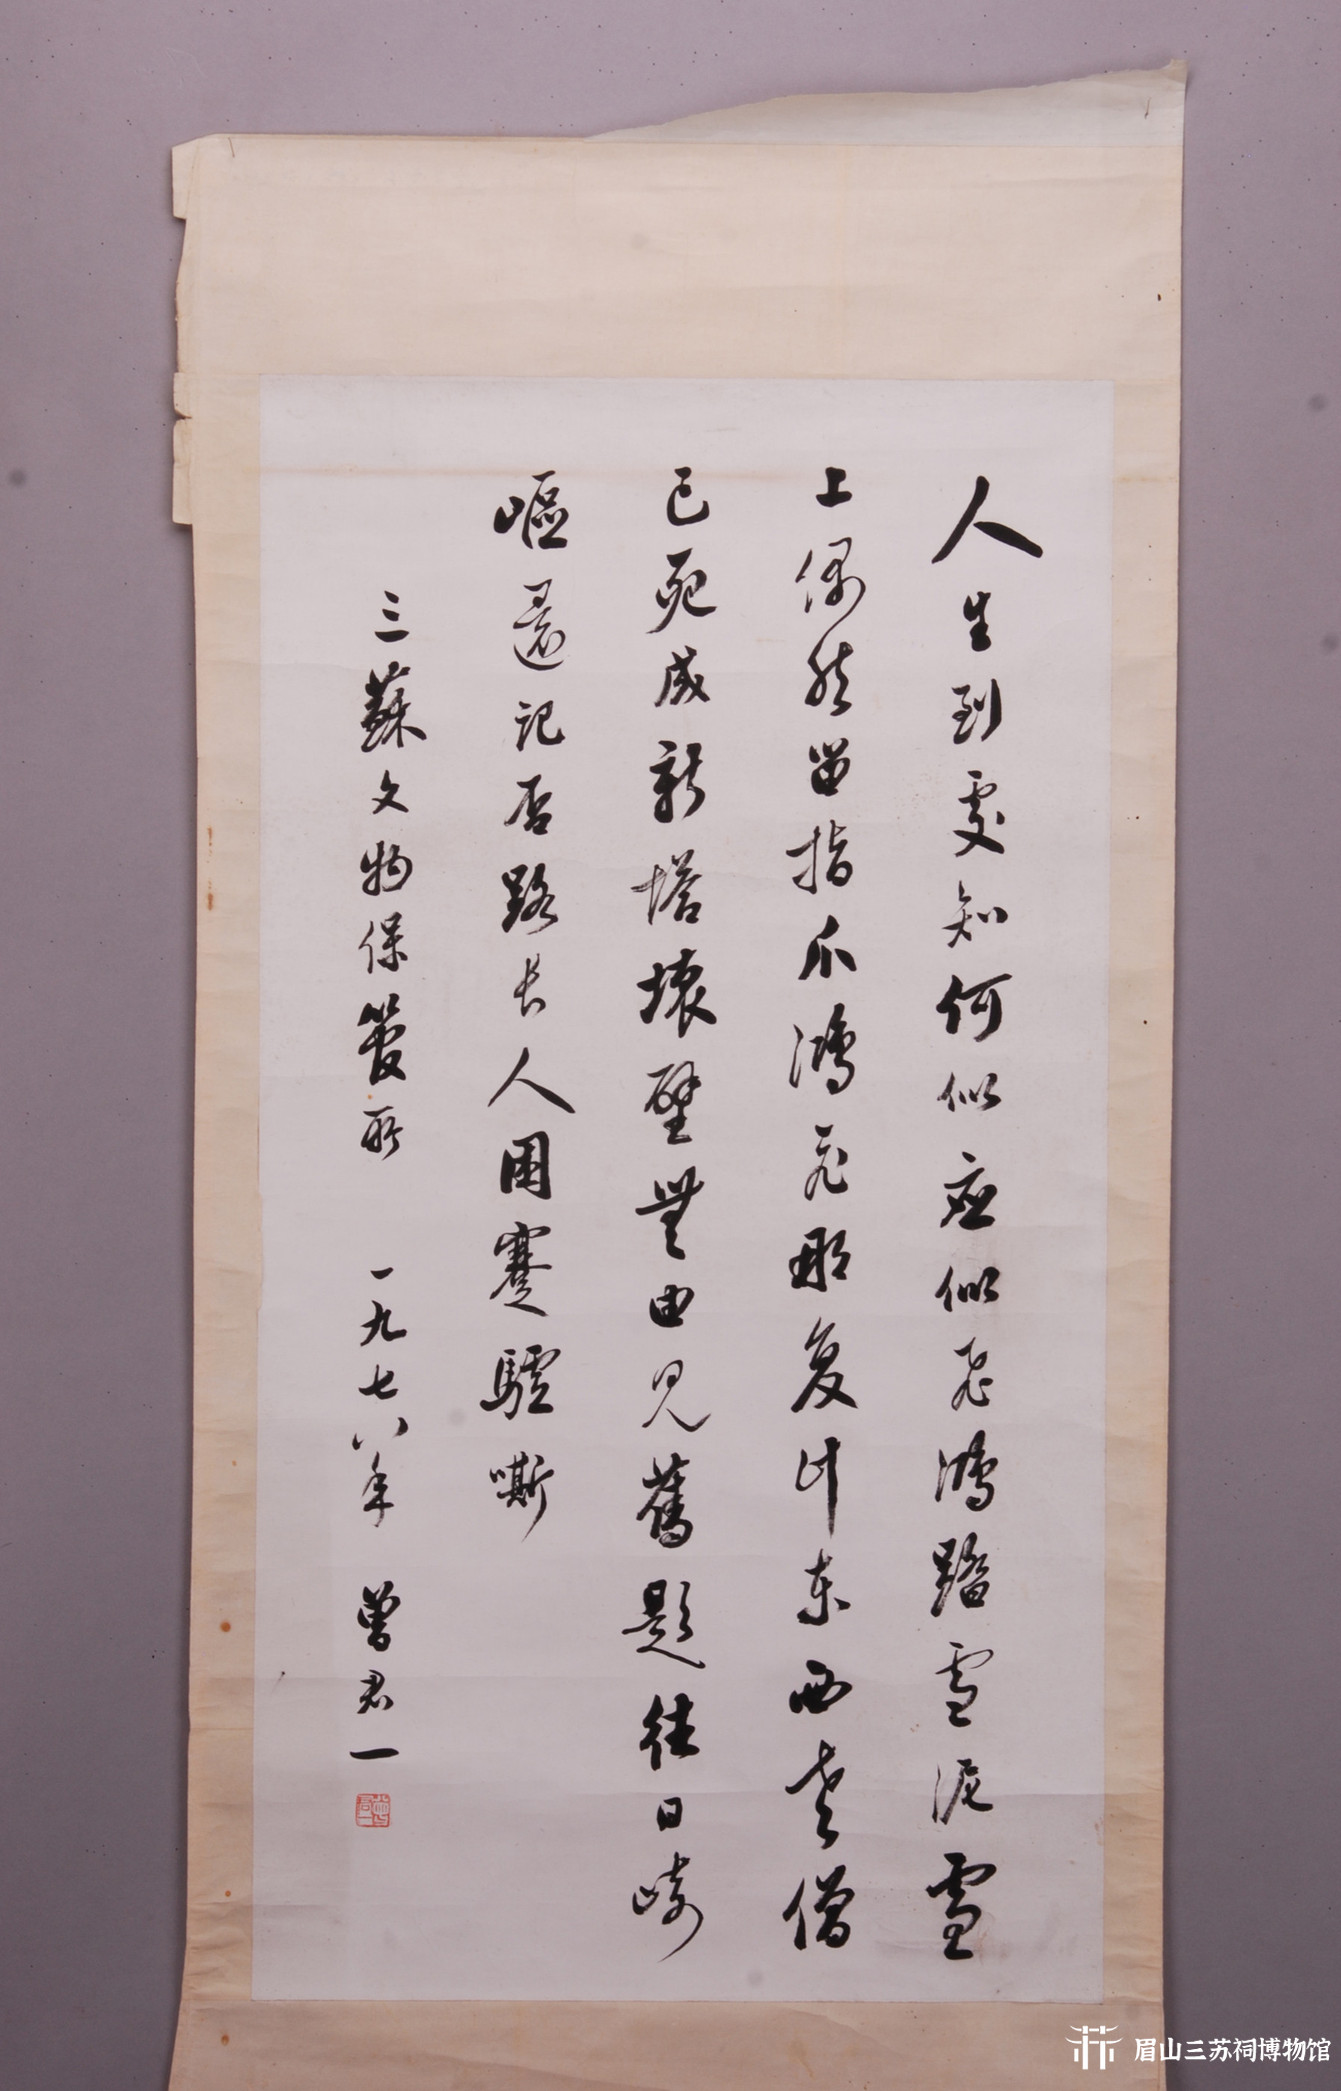 人生到處知何似应似飞鴻踏雪泥雪
上偶然留指爪鴻飞那复计东西老僧
已死成新塔壞壁無由見舊題往日崎
嶇還記否路长人困蹇驢嘶
三蘇文物保管所 一九七八年 曾君一
眉山三苏祠博物馆